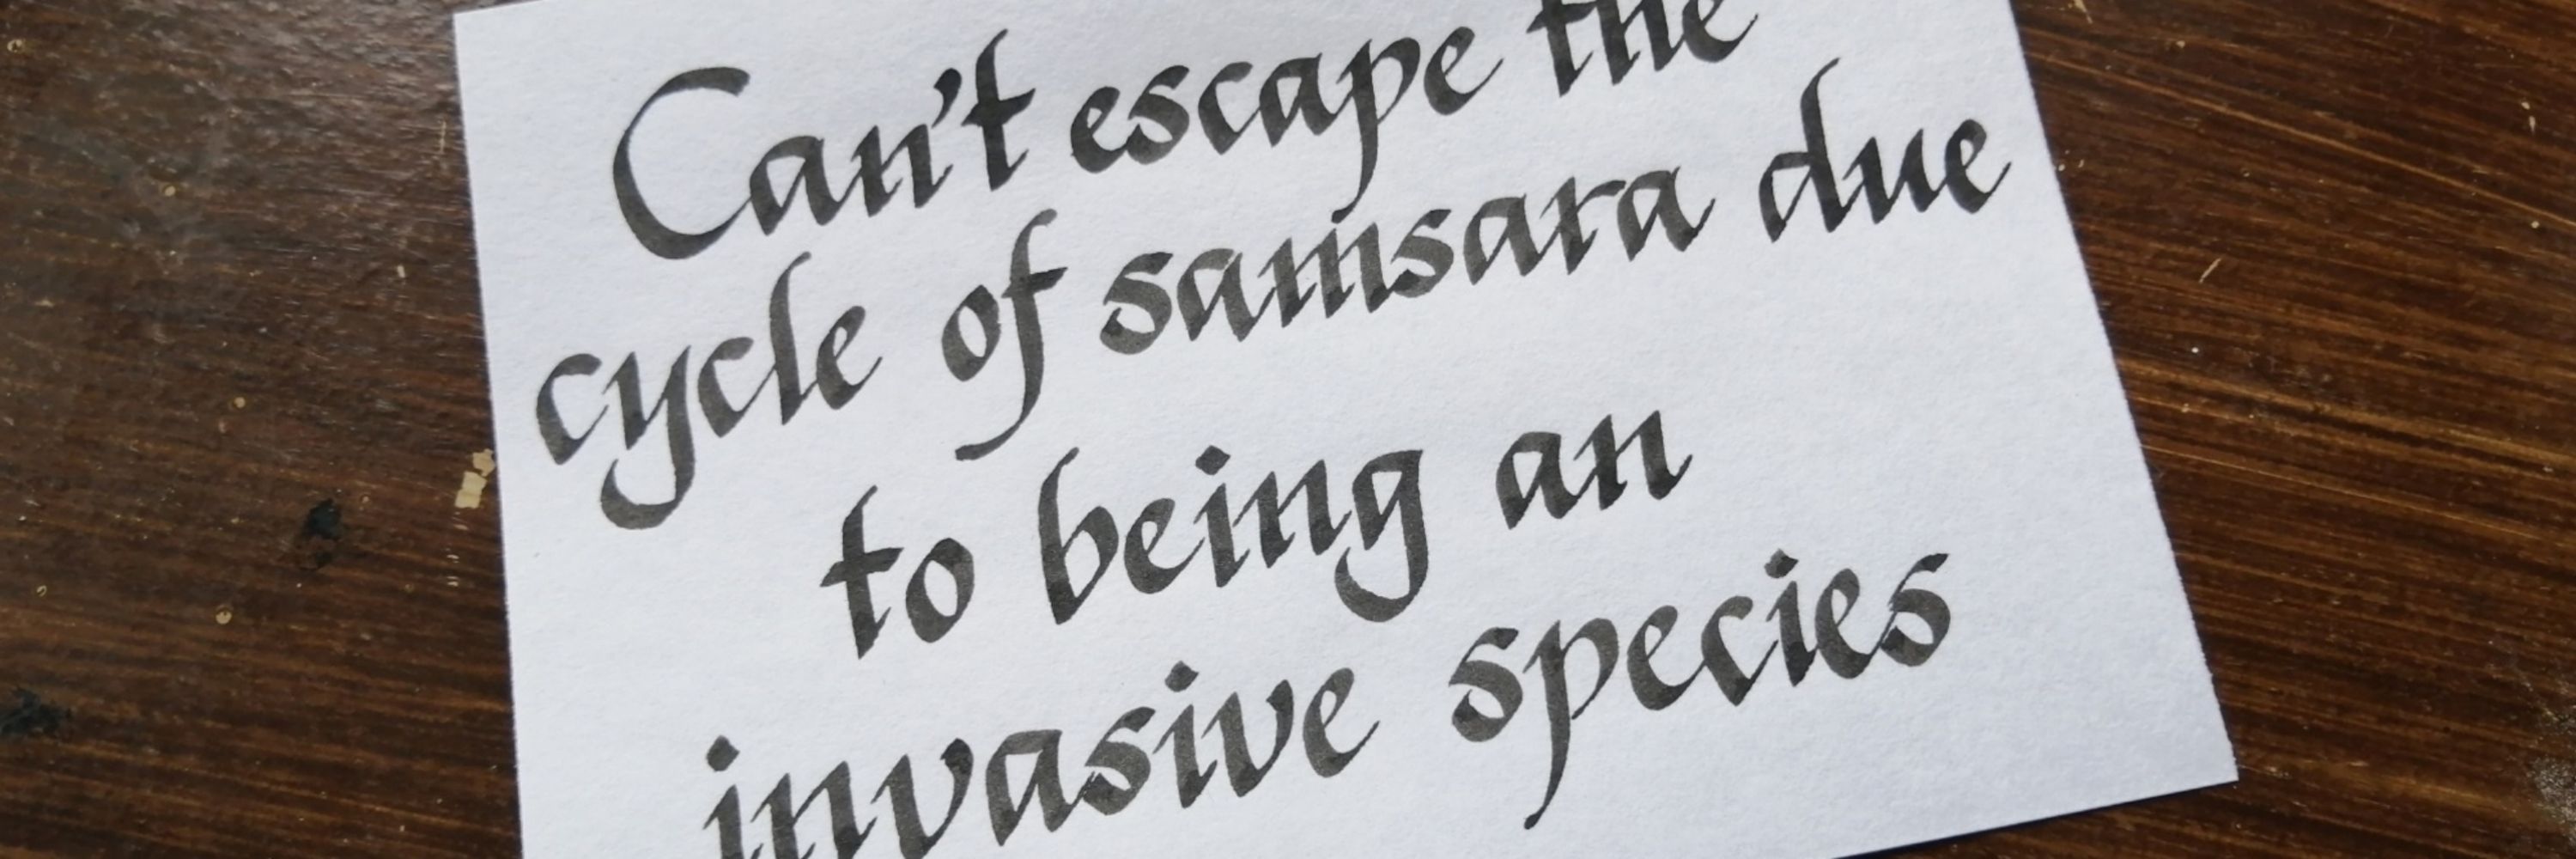 Can't escape the
cycle of samsara due
to being an
invasive species